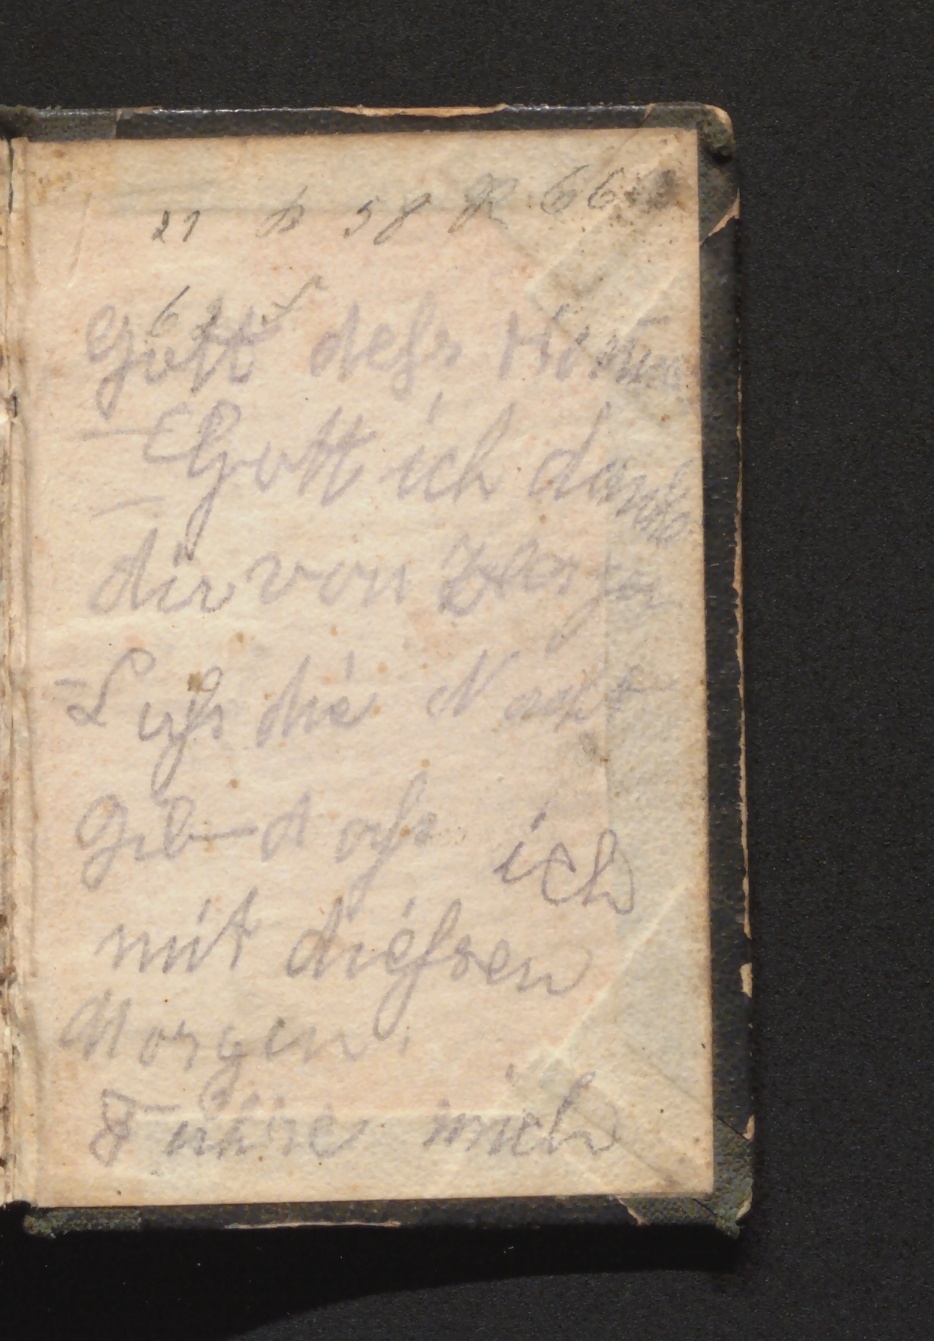 21 58 66
62
Gott deßs Him
Gott ich danke
dir von Her
Laßs die Nacht
Gib daßs ich
mit dießsen
Morgen.
Führe mich